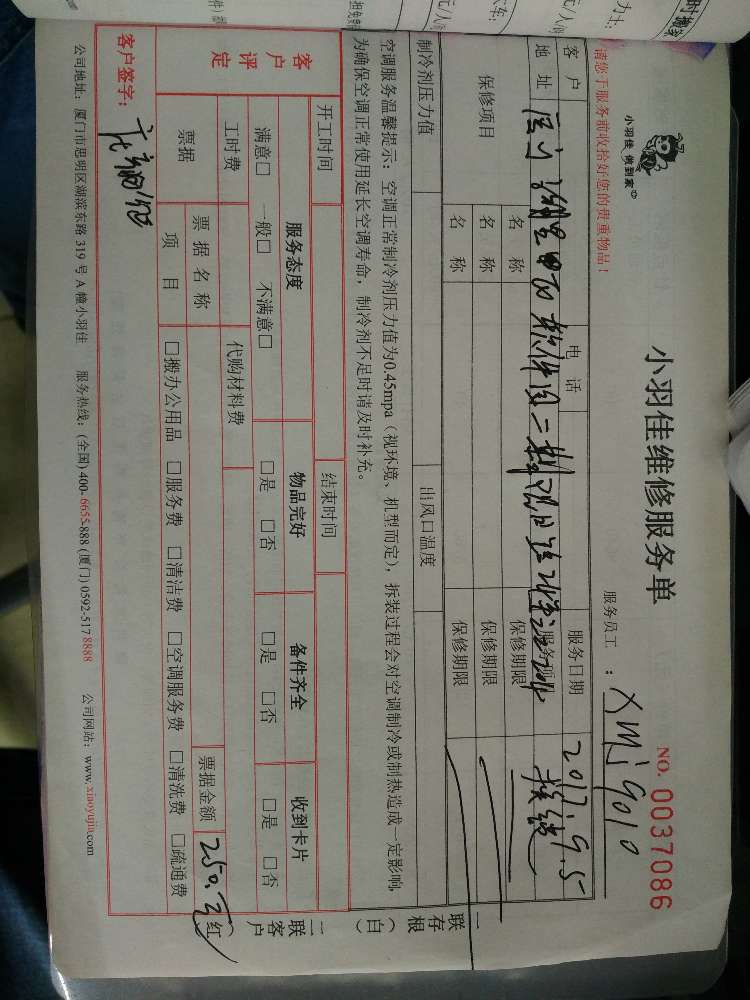 小羽佳 做到家
小羽佳维修服务单
NO. 0037086
请您于服务前收拾好您的贵重物品！
服务员工 ： xmj9010
客 户
电 话
服务日期
2017.9.5
地 址
服务项目
保修项目
名 称
保修期限
名 称
保修期限
名 称
保修期限
制冷剂压力值
出风口温度
空调服务温馨提示：空调正常制冷剂压力值为0.45mpa（视环境、机型而定），拆装过程会对空调制冷或制热造成一定影响，
为确保空调正常使用延长空调寿命，制冷剂不足时请及时补充。
开工时间
结束时间
客 户 评 定
服务态度
物品完好
备件齐全
收到卡片
满意□ 一般□ 不满意□
□是 □否
□是 □否
□是 □否
工时费
代购材料费
票据
票 据 名 称
票据金额
250.元
项 目
□搬办公用品 □服务费 □清洁费 □空调服务费 □清洗费 □疏通费
客户签字：
公司地址：厦门市思明区湖滨东路 319 号 A 幢小羽佳 服务热线：(全国) 400-6655-888 (厦门) 0592-517 8888 公司网站：www.xiaoyujia.com
一联存根（白）
二联客户（红）